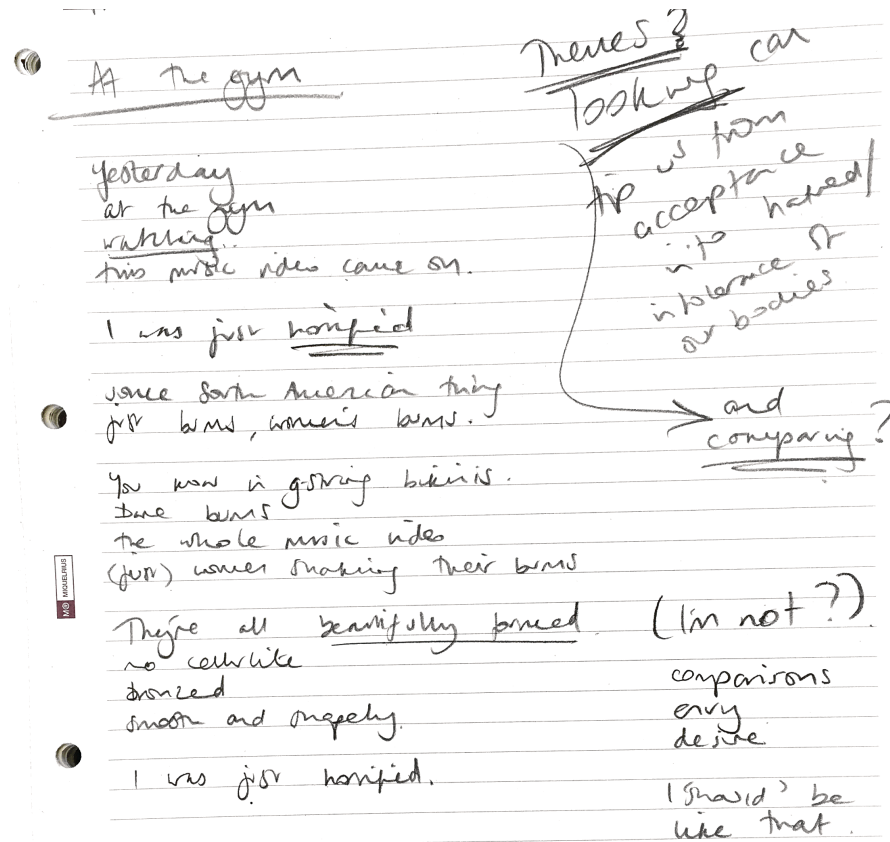 At the gym
Yesterday
at the gym
watching..
this music video came on.
I was just horrified
some South American thing
just bums, women's bums.
You know in g-string bikinis.
bums
the whole music video
(just) women shaking their bums
They're all beautifully formed.
no cellulite
bronzed
smooth and shapely.
I was just horrified.
Themes?
looking can
tip us from
acceptance
into hatred/
intolerance of
our bodies
and
comparing?
(I'm not?)
comparisons
envy
desire
I 'should' be
like that.
MIQUELRIUS